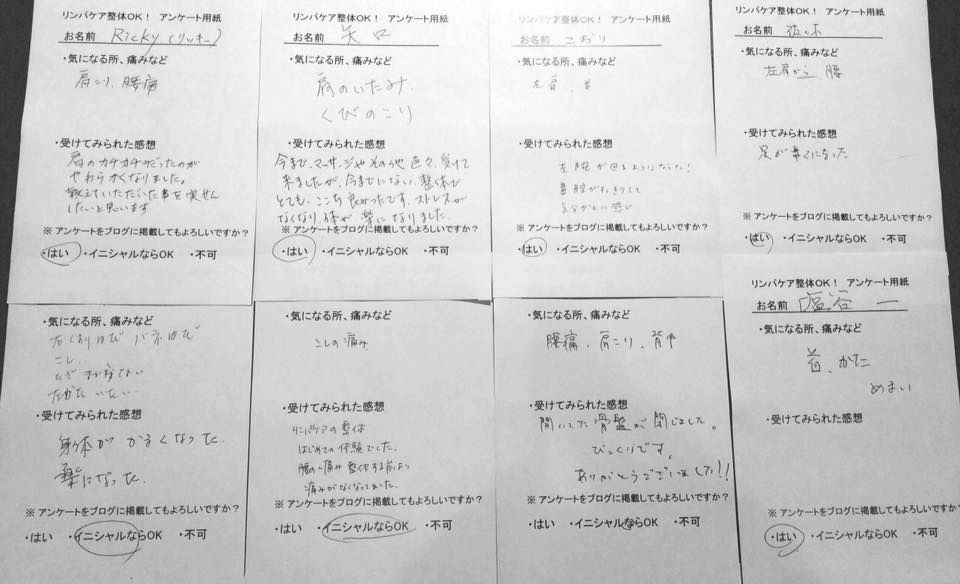 リンパケア整体OK! アンケート用紙
お名前 Ricky(リッキー)
・気になる所、痛みなど
肩こり、腰痛
・受けてみられた感想
肩のカチカチだったのが
やわらかくなりました。
教えていただいた事を実せん
したいと思います
※ アンケートをブログに掲載してもよろしいですか?
・はい ・イニシャルならOK ・不可
リンパケア整体OK! アンケート用紙
お名前 矢口
・気になる所、痛みなど
肩のいたみ、
くびのこり
・受けてみられた感想
今まで、マッサージやその他色々、受けて
来ましたが、今までにない、整体で
とても、ここち良かったです。ストレスが
なくなり、体が楽になりました。
※ アンケートをブログに掲載してもよろしいですか?
・はい ・イニシャルならOK ・不可
リンパケア整体OK! アンケート用紙
お名前
・気になる所、痛みなど
左肩、首
・受けてみられた感想
左腕が回るようになった!
鼻腔がすっきりして
※ アンケートをブログに掲載してもよろしいですか?
・はい ・イニシャルならOK ・不可
リンパケア整体OK! アンケート用紙
お名前
・気になる所、痛みなど
左肩から 腰
・受けてみられた感想
足が軽くになった
※ アンケートをブログに掲載してもよろしいですか?
・はい ・イニシャルならOK ・不可
・気になる所、痛みなど
こし、
・受けてみられた感想
身体が かるくなった。
楽になった。
※ アンケートをブログに掲載してもよろしいですか?
・はい ・イニシャルならOK ・不可
・気になる所、痛みなど
こしの痛み
・受けてみられた感想
リンパケアの整体
はじめての体験でした。
腰の痛み 整体する前より
痛みがなくなってました。
※ アンケートをブログに掲載してもよろしいですか?
・はい ・イニシャルならOK ・不可
・気になる所、痛みなど
腰痛、肩こり、背中
・受けてみられた感想
開いてた骨盤が閉じました。
びっくりです。
ありがとうございました!!
※ アンケートをブログに掲載してもよろしいですか?
・はい ・イニシャルならOK ・不可
リンパケア整体OK! アンケート用紙
お名前 塩谷 一
・気になる所、痛みなど
首、かた
めまい
・受けてみられた感想
※ アンケートをブログに掲載してもよろしいですか?
・はい ・イニシャルならOK ・不可